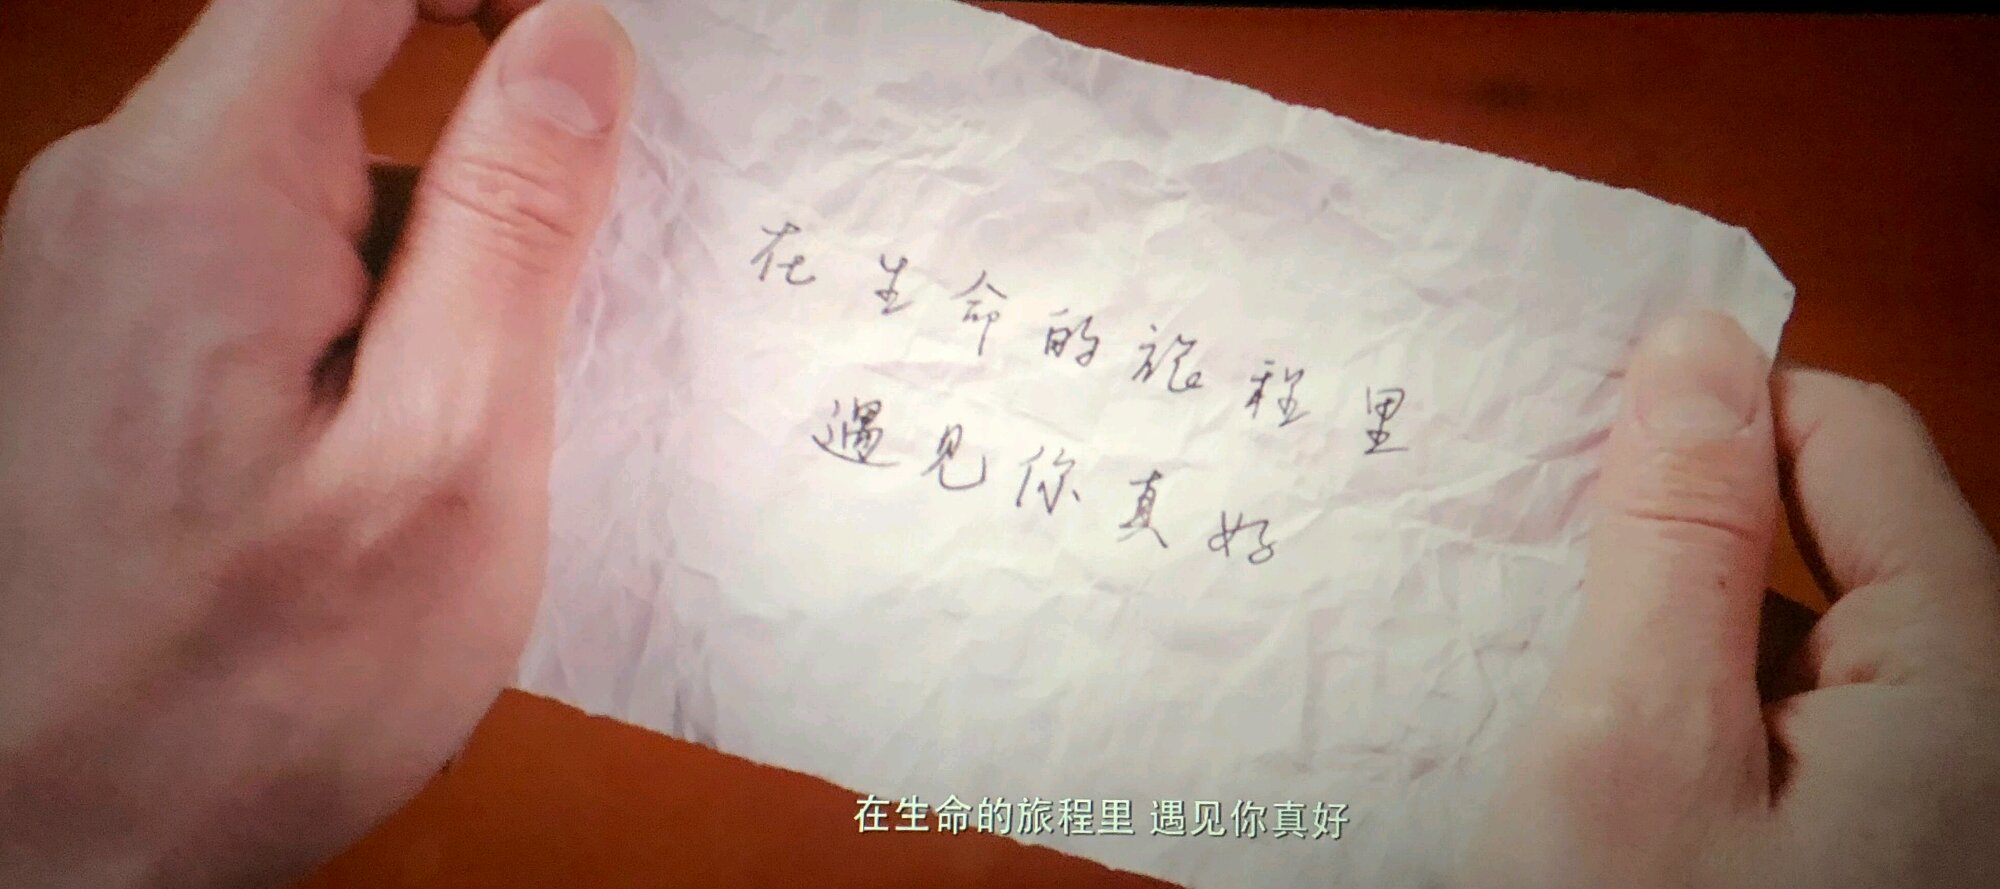 在生命的旅程里
遇见你真好
在生命的旅程里 遇见你真好